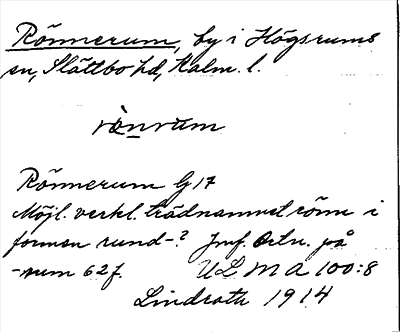 Rönnerum, by i Högsrums
sn, Slättbo hd, Kalm. l.
rȯ̀nrum
Rönnerum G 17
Möjl. verkl. trädnamnet rönn i
formen rund-? Jmf. Ortn. på
-rum 62 f. ULMA 100:8
Lindroth 1914